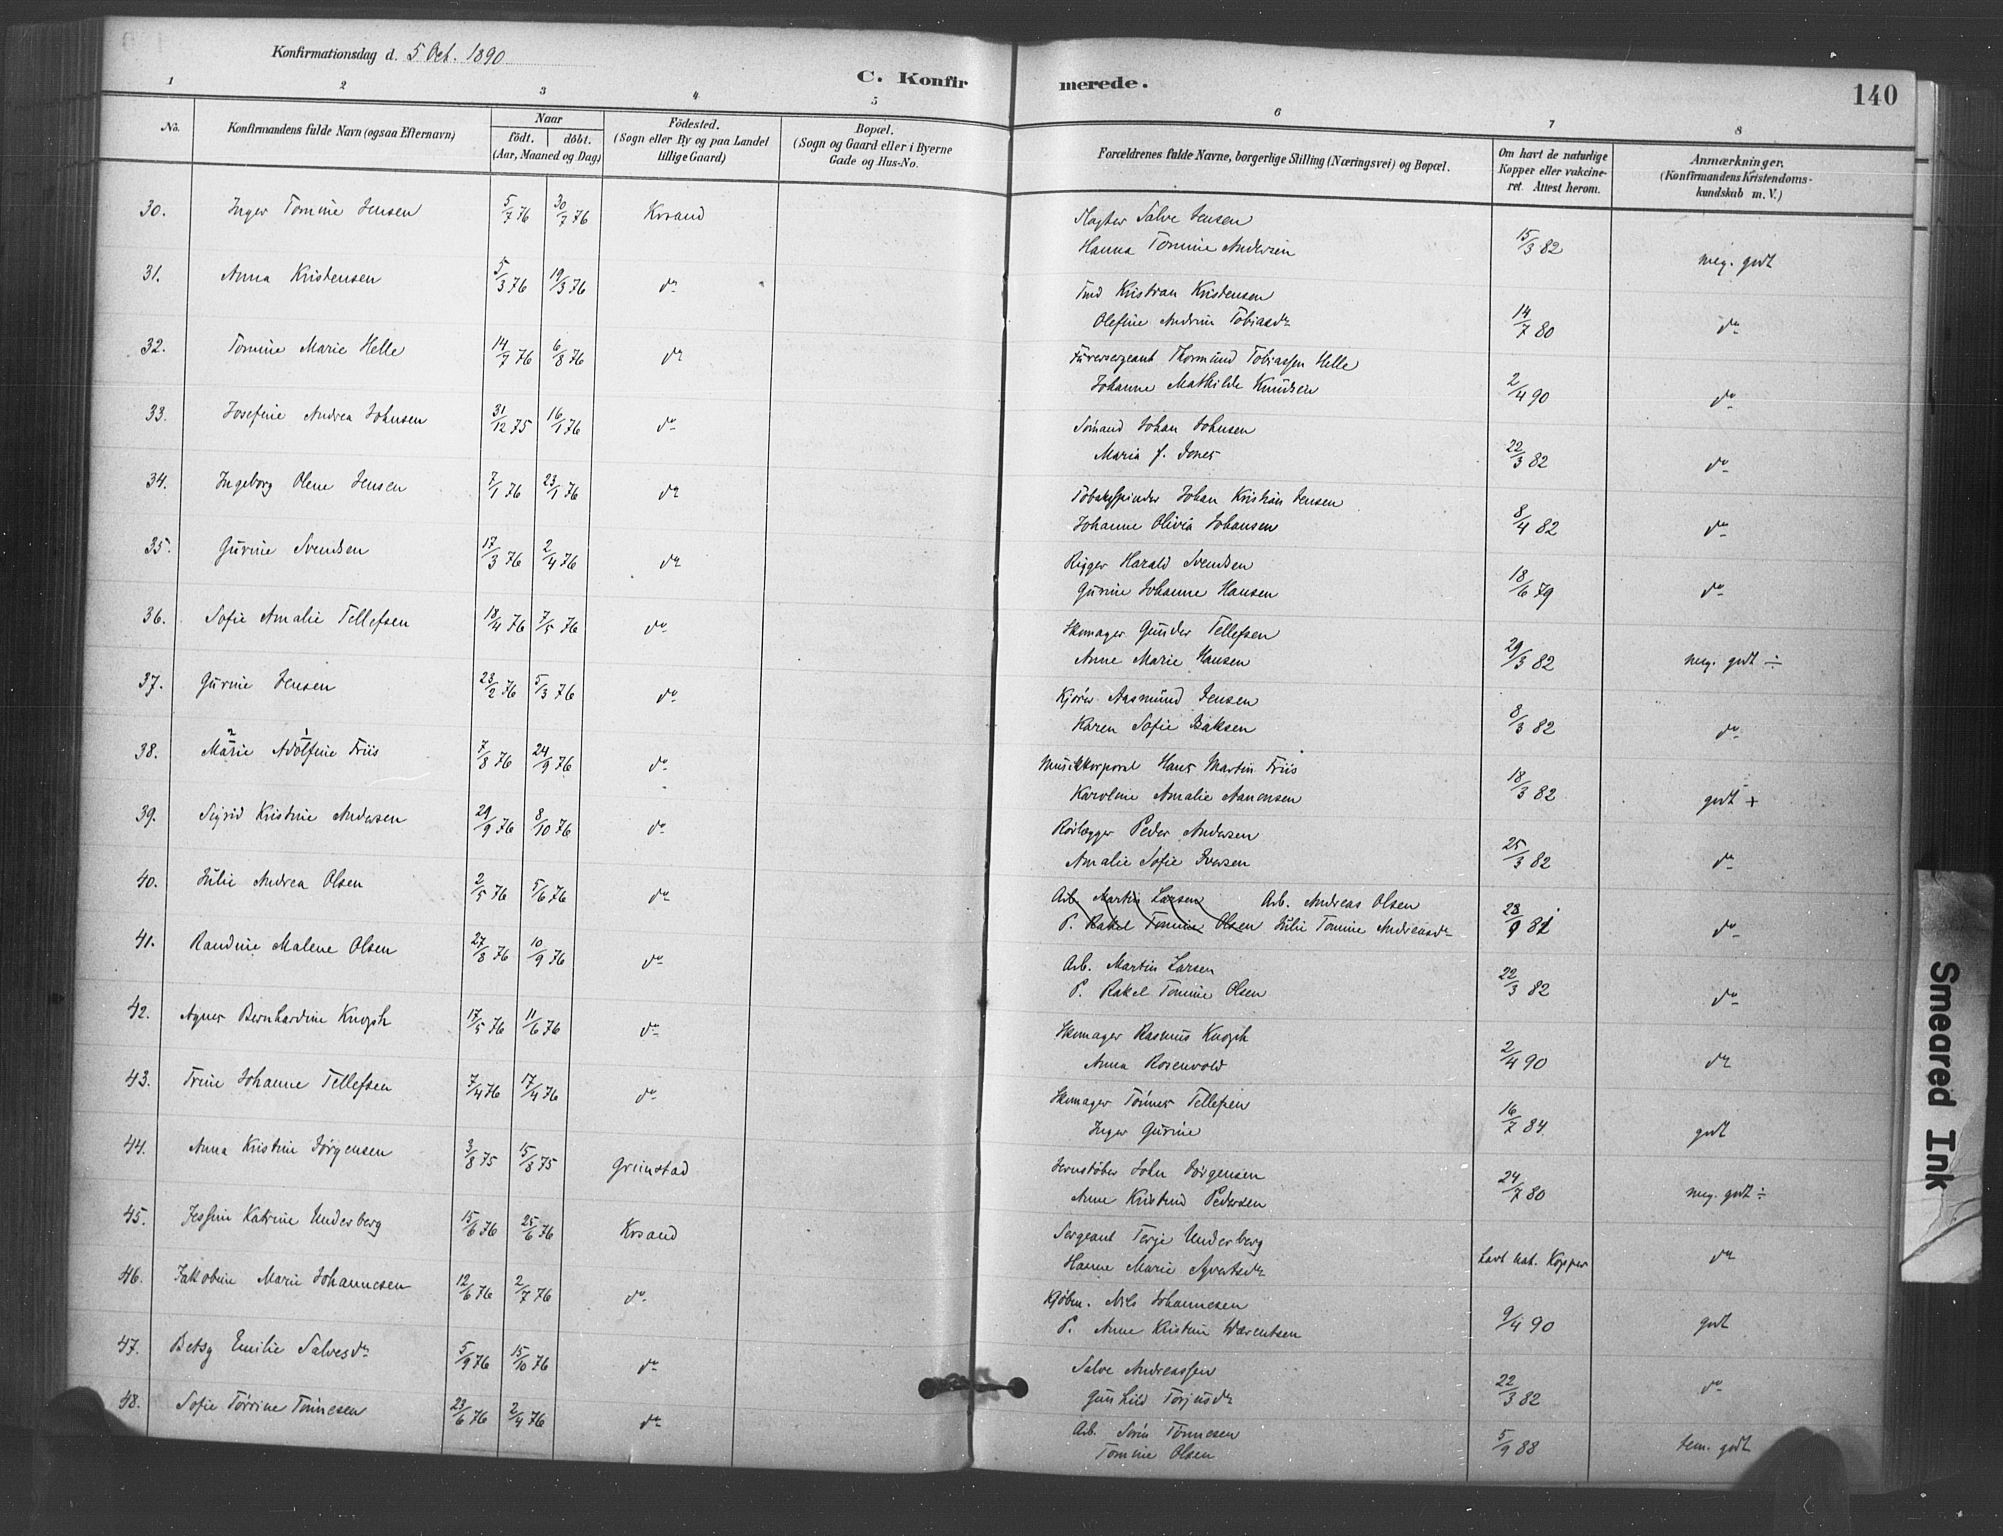 Konfirmationsdag d. 5 Oct. 1890
C. Konfirmerede.
140
1 2 3 4 5 6 7 8
No.
Konfirmandens fulde Navn (ogsaa Efternavn)
Naar
født. døbt.
(Aar, Maaned og Dag)
Fødested.
(Sogn eller By og paa Landet
tillige Gaard)
Bopæl.
(Sogn og Gaard eller i Byerne
Gade og Hus-No.
Forældrenes fulde Navne, borgerlige Stilling (Næringsvei) og Bopæl.
Om havt de naturlige
Kopper eller vakcine-
ret. Attest herom.
Anmærkninger.
(Konfirmandens Kristendoms-
kundskab m. V.)
30. Inger Tomine Jensen 5/7 76 30/7 76 Krsand Slagter Salve Jensen
Hanna Tomine Andersen 15/3 82 meg. godt
31. Anna Kristensen 5/3 76 19/3 76 do Tmd Kristian Kristensen
Olefine Andrine Tobiasdr 14/7 80 do
32. Tomine Marie Helle 14/7 76 6/8 76 do Furersergeant Thormund Tobiassen Helle
Johanne Mathilde Knudsen 2/4 90 do
33. Josefine Andrea Johnsen 31/12 75 16/1 76 do Sømand Johan Johnsen
Maria J. Jones 22/3 82 do
34. Ingeborg Olene Jensen 7/1 76 23/1 76 do Tobakspinder Johan Kristian Jensen
Johanne Olivia Johansen 8/4 82 do
35. Gurine Svendsen 17/3 76 2/4 76 do Rigger Harald Svendsen
Gurine Johanne Hansen 18/6 79 do
36. Sofie Amalie Tellefsen 18/4 76 7/5 76 do Skomager Gunder Tellefsen
Anne Marie Hansen 29/3 82 meg. godt ÷
37. Gurine Jensen 23/2 76 5/3 76 do Kjører Aasmund Jensen
Karen Sofie Isaksen 8/3 82 do
38. Marie Adolfine Friis 7/8 76 24/9 76 do Musikkorporal Hans Martin Friis
Karoline Amalie Aanensen 18/3 82 godt +
39. Sigrid Kristine Andersen 29/9 76 8/10 76 do Rørlægger Peder Andersen
Amalie Sofie Iversen 25/3 82 do
40. Julie Andrea Olsen 2/5 76 5/6 76 do Arb. Martin Larsen Arb. Andreas Olsen
P. Rakel Tomine Olsen Julie Tomine Andreasdr do
41. Randine Malene Olsen 27/8 76 10/9 76 do Arb. Martin Larsen
P. Rakel Tomine Olsen 22/3 82 do
42. Agnes Bernhardine Knoph 17/5 76 11/6 76 do Skomager Rasmus Knoph
Anna Rosenvold 2/4 90 do
43. Trine Johanne Tellefsen 7/4 76 17/4 76 do Skomager Tønnes Tellefsen
Inger Gurine 16/7 84 godt
44. Anna Kristine Jørgensen 3/8 75 15/8 75 Grimstad Jernstøber John Jørgensen
Anne Kristine Pedersen 24/7 80 meg. godt ÷
45. Jessine Katrine Underberg 15/6 76 25/6 76 Krsand Sergeant Terje Underberg
Hanne Marie Syvertsdr havt nat. Kopper do
46. Jakobine Marie Johannesen 12/6 76 2/7 76 do Kjøbm. Nils Johannesen
P. Anne Kristine Wærentsen 9/4 90 godt
47. Betsy Emilie Salvesdr 5/9 76 15/10 76 do Salve Andreassen
Gunhild Torjusdr 22/3 82 do
48. Sofie Torrine Tønnesen 2/4 76 do Arb. Søren Tønnesen
Tomine Olsen 5/9 88 tem. godt
Smeared Ink